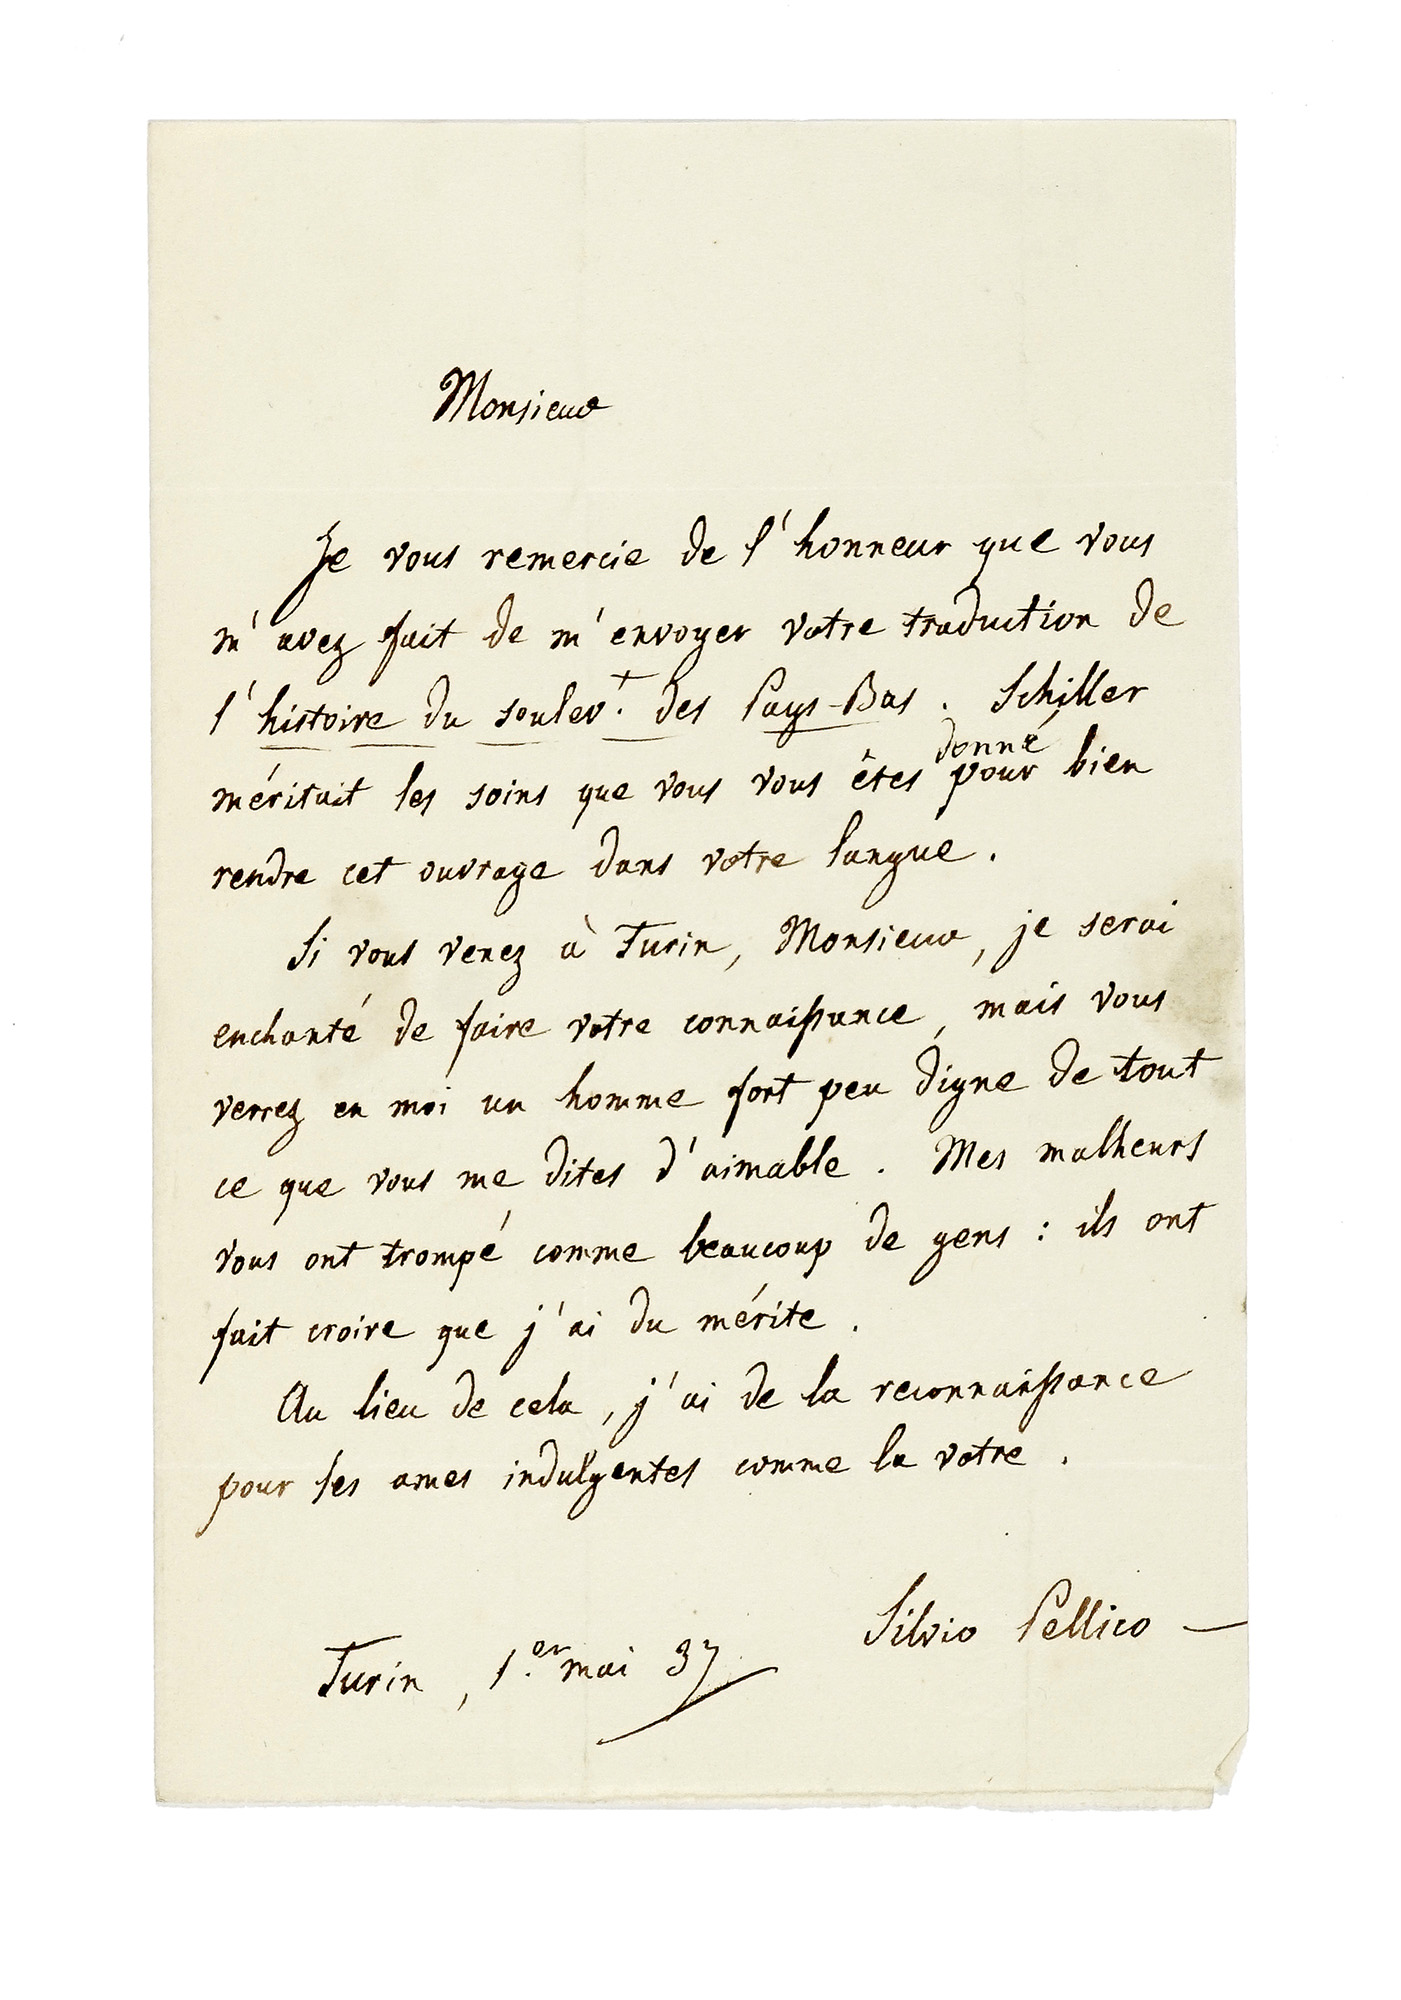 Monsieur
Je vous remercie de l'honneur que vous
m'avez fait de m'envoyer votre traduction de
l'histoire du soulev.t des Pays-Bas. Schiller
donné
méritait les soins que vous vous êtes pour bien
rendre cet ouvrage dans votre langue.
Si vous venez à Turin, Monsieur, je serai
enchanté de faire votre connaissance, mais vous
verrez en moi un homme fort peu digne de tout
ce que vous me dites d'aimable. Mes malheurs
vous ont trompé comme beaucoup de gens : ils ont
fait croire que j'ai du mérite.
Au lieu de cela, j'ai de la reconnaissance
pour les ames indulgentes comme la votre.
Silvio Pellico —
Turin, 1.er mai 37